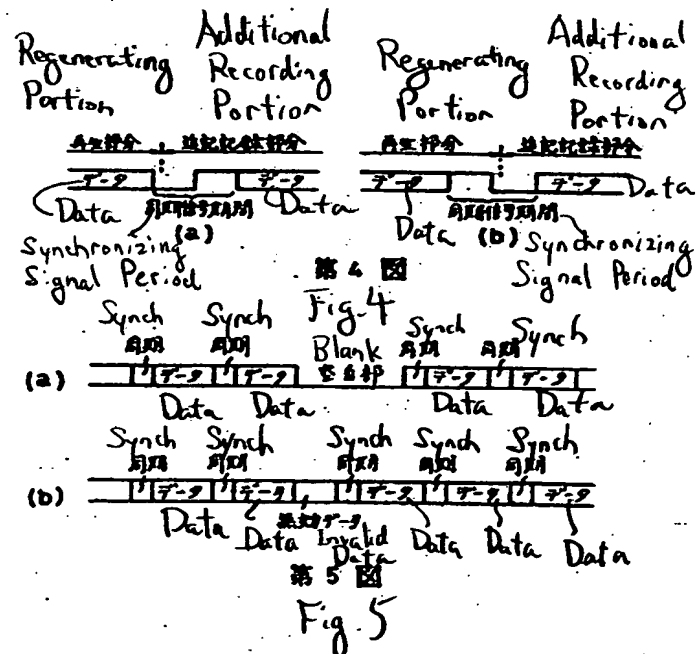 Regenerating Portion
Additional Recording Portion
Regenerating Portion
Additional Recording Portion
再生部分 追記記録部分
再生部分 追記記録部分
データ データ
データ データ Data
Data 同期信号期間 Data
Data 同期信号期間
(a)
(b)
Synchronizing Signal Period
Synchronizing Signal Period
第 4 図
Fig. 4
Synch Synch Blank Synch Synch
同期 同期 空白部 同期 同期
(a) データ データ データ データ
Data Data Data Data
Synch Synch Synch Synch Synch
同期 同期 同期 同期 同期
(b) データ データ データ データ データ
Data Data 無効データ Invalid Data Data Data Data
第 5 図
Fig. 5